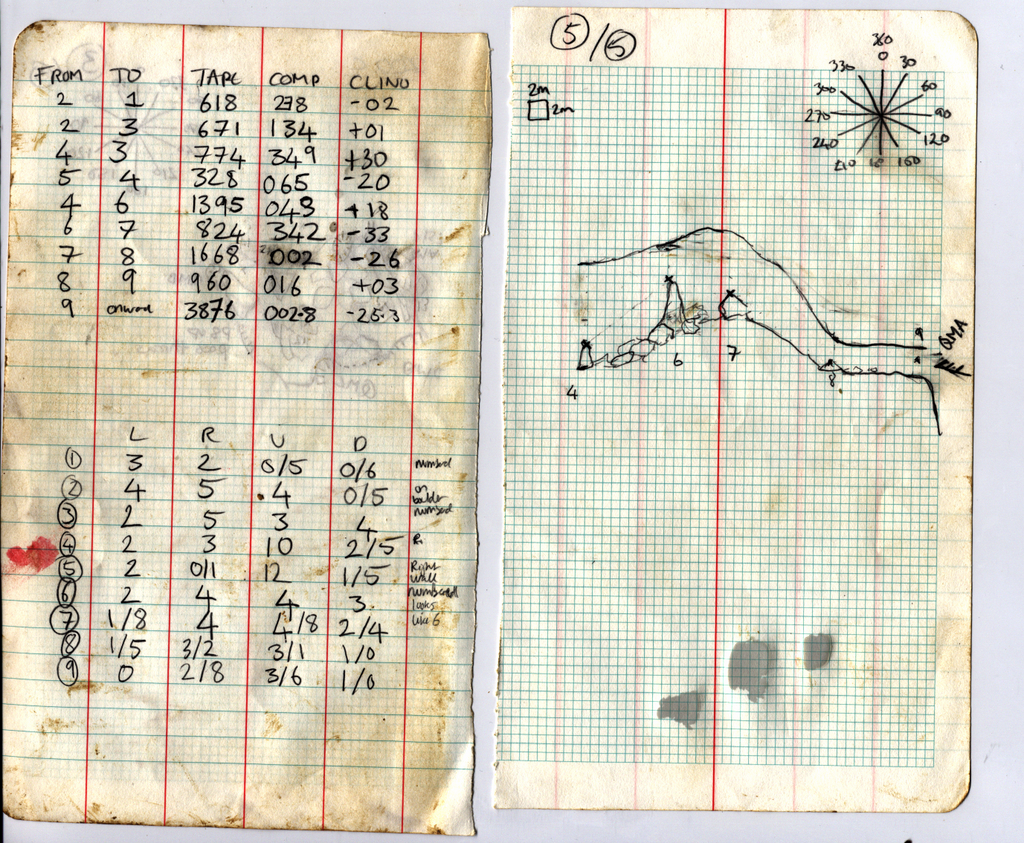 FROM TO TAPE COMP CLINO
2 1 618 278 -02
2 3 671 134 +01
4 3 774 349 +30
5 4 328 065 -20
4 6 1395 043 +18
6 7 824 342 -33
7 8 1668 002 -26
8 9 960 016 +03
9 onward 3876 002.8 -25.3
L R U D
1 3 2 0/5 0/6
2 4 5 4 0/5 on boulder
3 2 5 3 4
4 2 3 10 2/5
5 2 0/1 12 1/5 Right wall
6 2 4 4 3
7 1/8 4 4/8 2/4 looks like 6
8 1/5 3/2 3/1 1/0
9 0 2/8 3/6 1/0
5/5
2m
2m
360
0
330 30
300 60
270 90
240 120
210 18 150
9
QMA
6 7
8
4